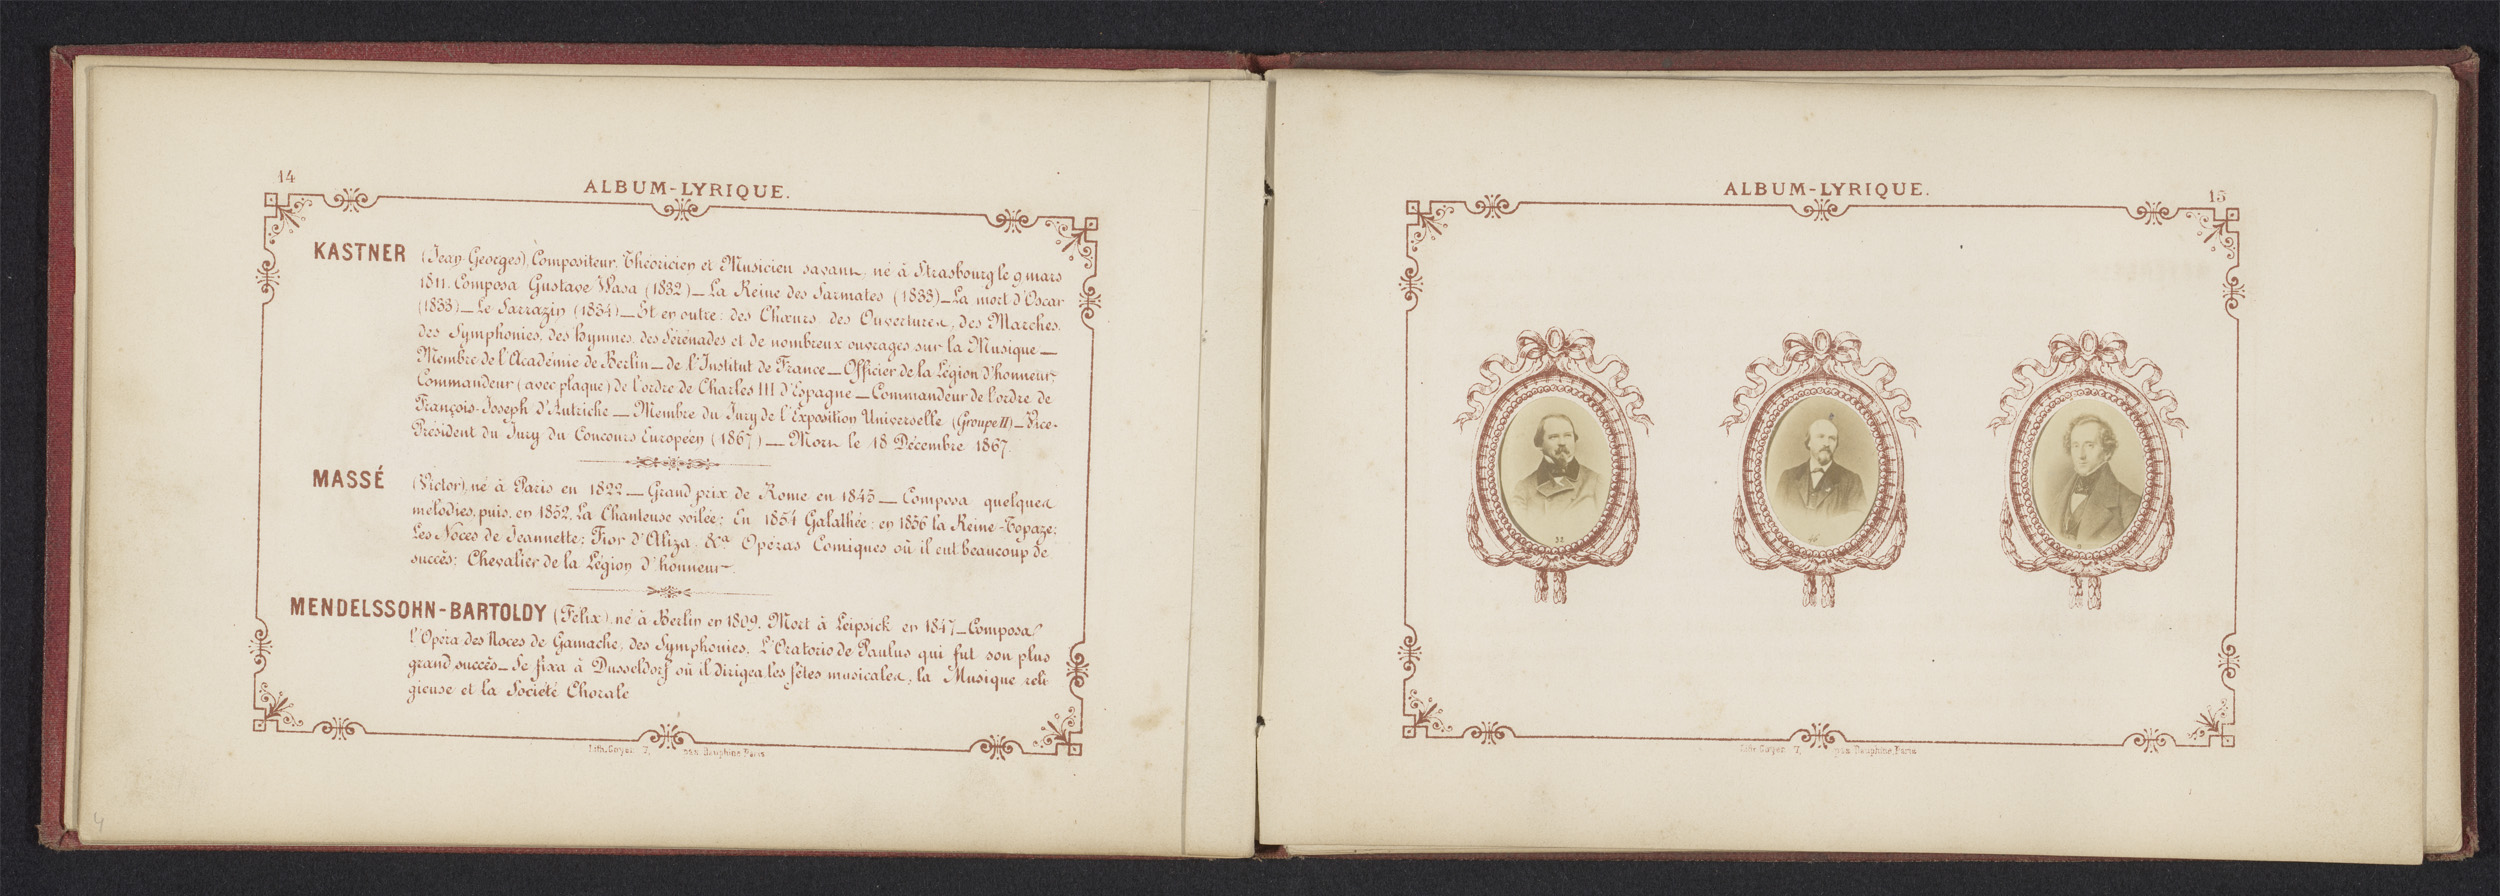 14
ALBUM-LYRIQUE.
KASTNER (Jean-Georges), Compositeur, Théoricien et Musicien savant, né à Strasbourg le 9 mars
1811. Composa Gustave Wasa (1832) — La Reine des Sarmates (1833) — La mort d'Oscar
(1833) — Le Sarrazin (1834) — Et en outre: des Chœurs, des Ouvertures, des Marches,
des Symphonies, des Hymnes, des Sérénades et de nombreux ouvrages sur la Musique —
Membre de l'Académie de Berlin — de l'Institut de France — Officier de la Légion d'honneur,
Commandeur (avec plaque) de l'ordre de Charles III d'Espagne — Commandeur de l'ordre de
François-Joseph d'Autriche — Membre du Jury de l'Exposition Universelle (Groupe II) — Vice-
Président du Jury du Concours Européen (1867) — Mort le 18 Décembre 1867.
MASSÉ (Victor), né à Paris en 1822 — Grand prix de Rome en 1843 — Composa quelques
mélodies, puis, en 1852, La Chanteuse voilée; En 1854 Galathée; en 1856 la Reine-Topaze;
Les Noces de Jeannette; Fior d'Aliza, &a. Opéras Comiques où il eut beaucoup de
succès; Chevalier de la Légion d'honneur.
MENDELSSOHN-BARTOLDY (Félix), né à Berlin en 1809. Mort à Leipsick en 1847 — Composa
l'Opéra des Noces de Gamache, des Symphonies, L'Oratorio de Paulus qui fut son plus
grand succès — Se fixa à Dusseldorf où il dirigea les fêtes musicales, la Musique reli
gieuse et la Société Chorale
Lith. Goyer 7, pas. Dauphine, Paris
4
ALBUM-LYRIQUE.
15
32
46
Lith. Goyer 7, pas. Dauphine, Paris